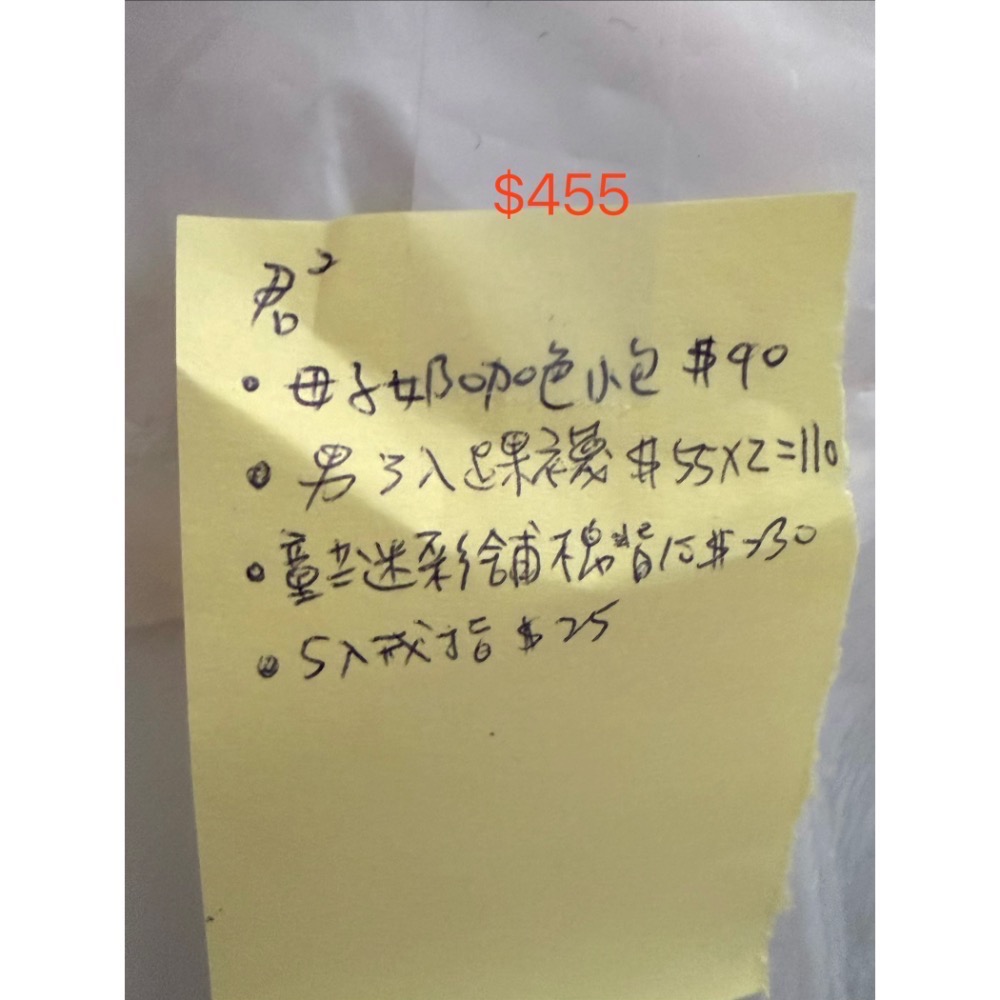 $455
君²
• 母子奶咖色小包 $90
• 男3入踝襪 $55X2=110
• 童裝迷彩鋪棉背心 $230
• 5入戒指 $25